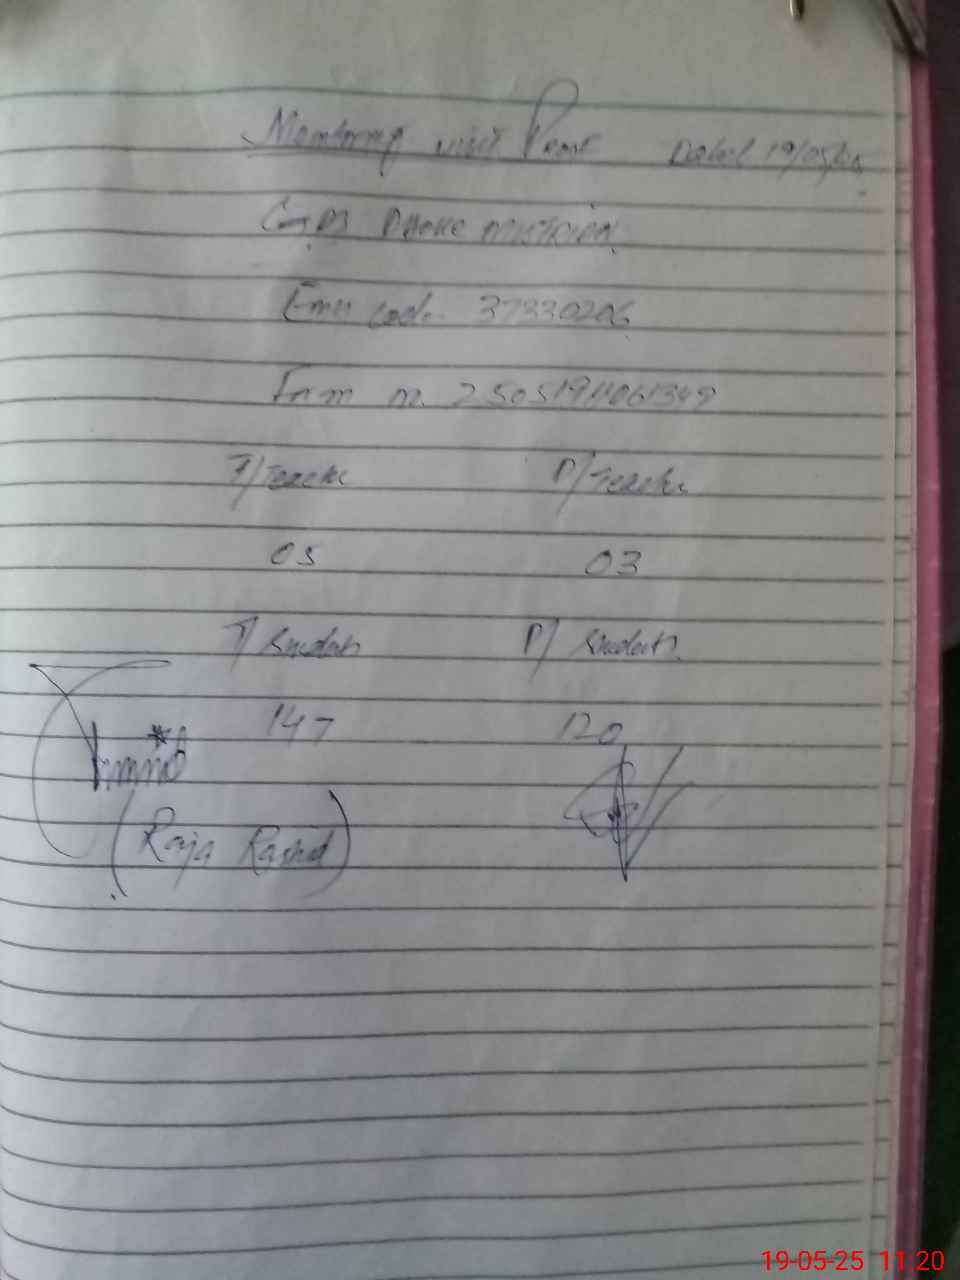 Monitoring visit Proof Dated 19/05/25
GPS DHOKE MUSTQEEM
Emis code. 37330206
Form no. 25051911061349
T/Teacher P/Teacher
05 03
T/Student P/Student
147 120
(Raja Rashid)
19-05-25 11:20